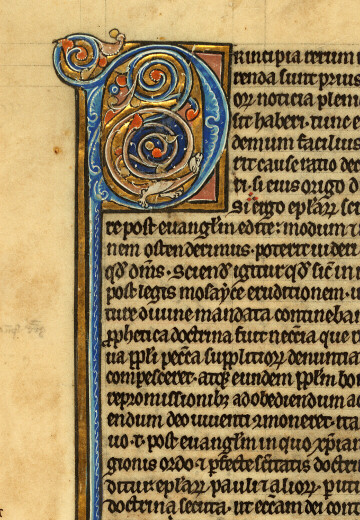 Principia rerum
renda sunt prius
or noticia plen
sit haberi. tunc
demum facilius
rit cause ratio
ri. si eius origo d
Si ergo eplar sci
re post euanglm edite: modum
nem ostenderimus. poterit uideri
qd dms. sciend igitur qd sic in
post legis mosayce eruditionem.
ture diuine mandata contineban
prophetica doctrina fuit neccia que
ua ppli peccta suppliciorum denuntia
compesceret. atq eundem pplm bo
repromissionib ad obediendum
endum deo uiuenti amoneret. ita
uo & post euanglm in quo xpian
gionis ordo & pfecte scitatis doctrin
ditur eplar pauli & alior. p uti
doctrina secuta. ut eccam dei con